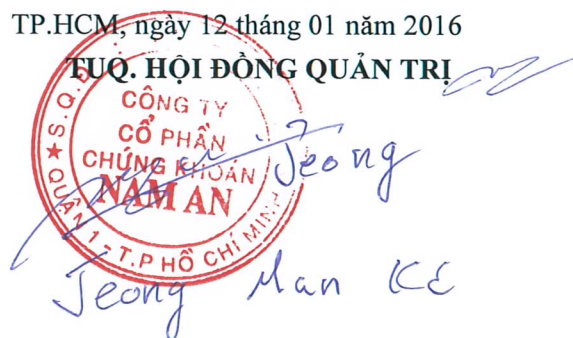 TP.HCM, ngày 12 tháng 01 năm 2016
TUQ. HỘI ĐỒNG QUẢN TRỊ
S.Q.Đ
CÔNG TY
CỔ PHẦN
CHỨNG KHOÁN
NAM AN
★ QUẬN 1 - T.P HỒ CHÍ MINH
Jeong
Jeong Man